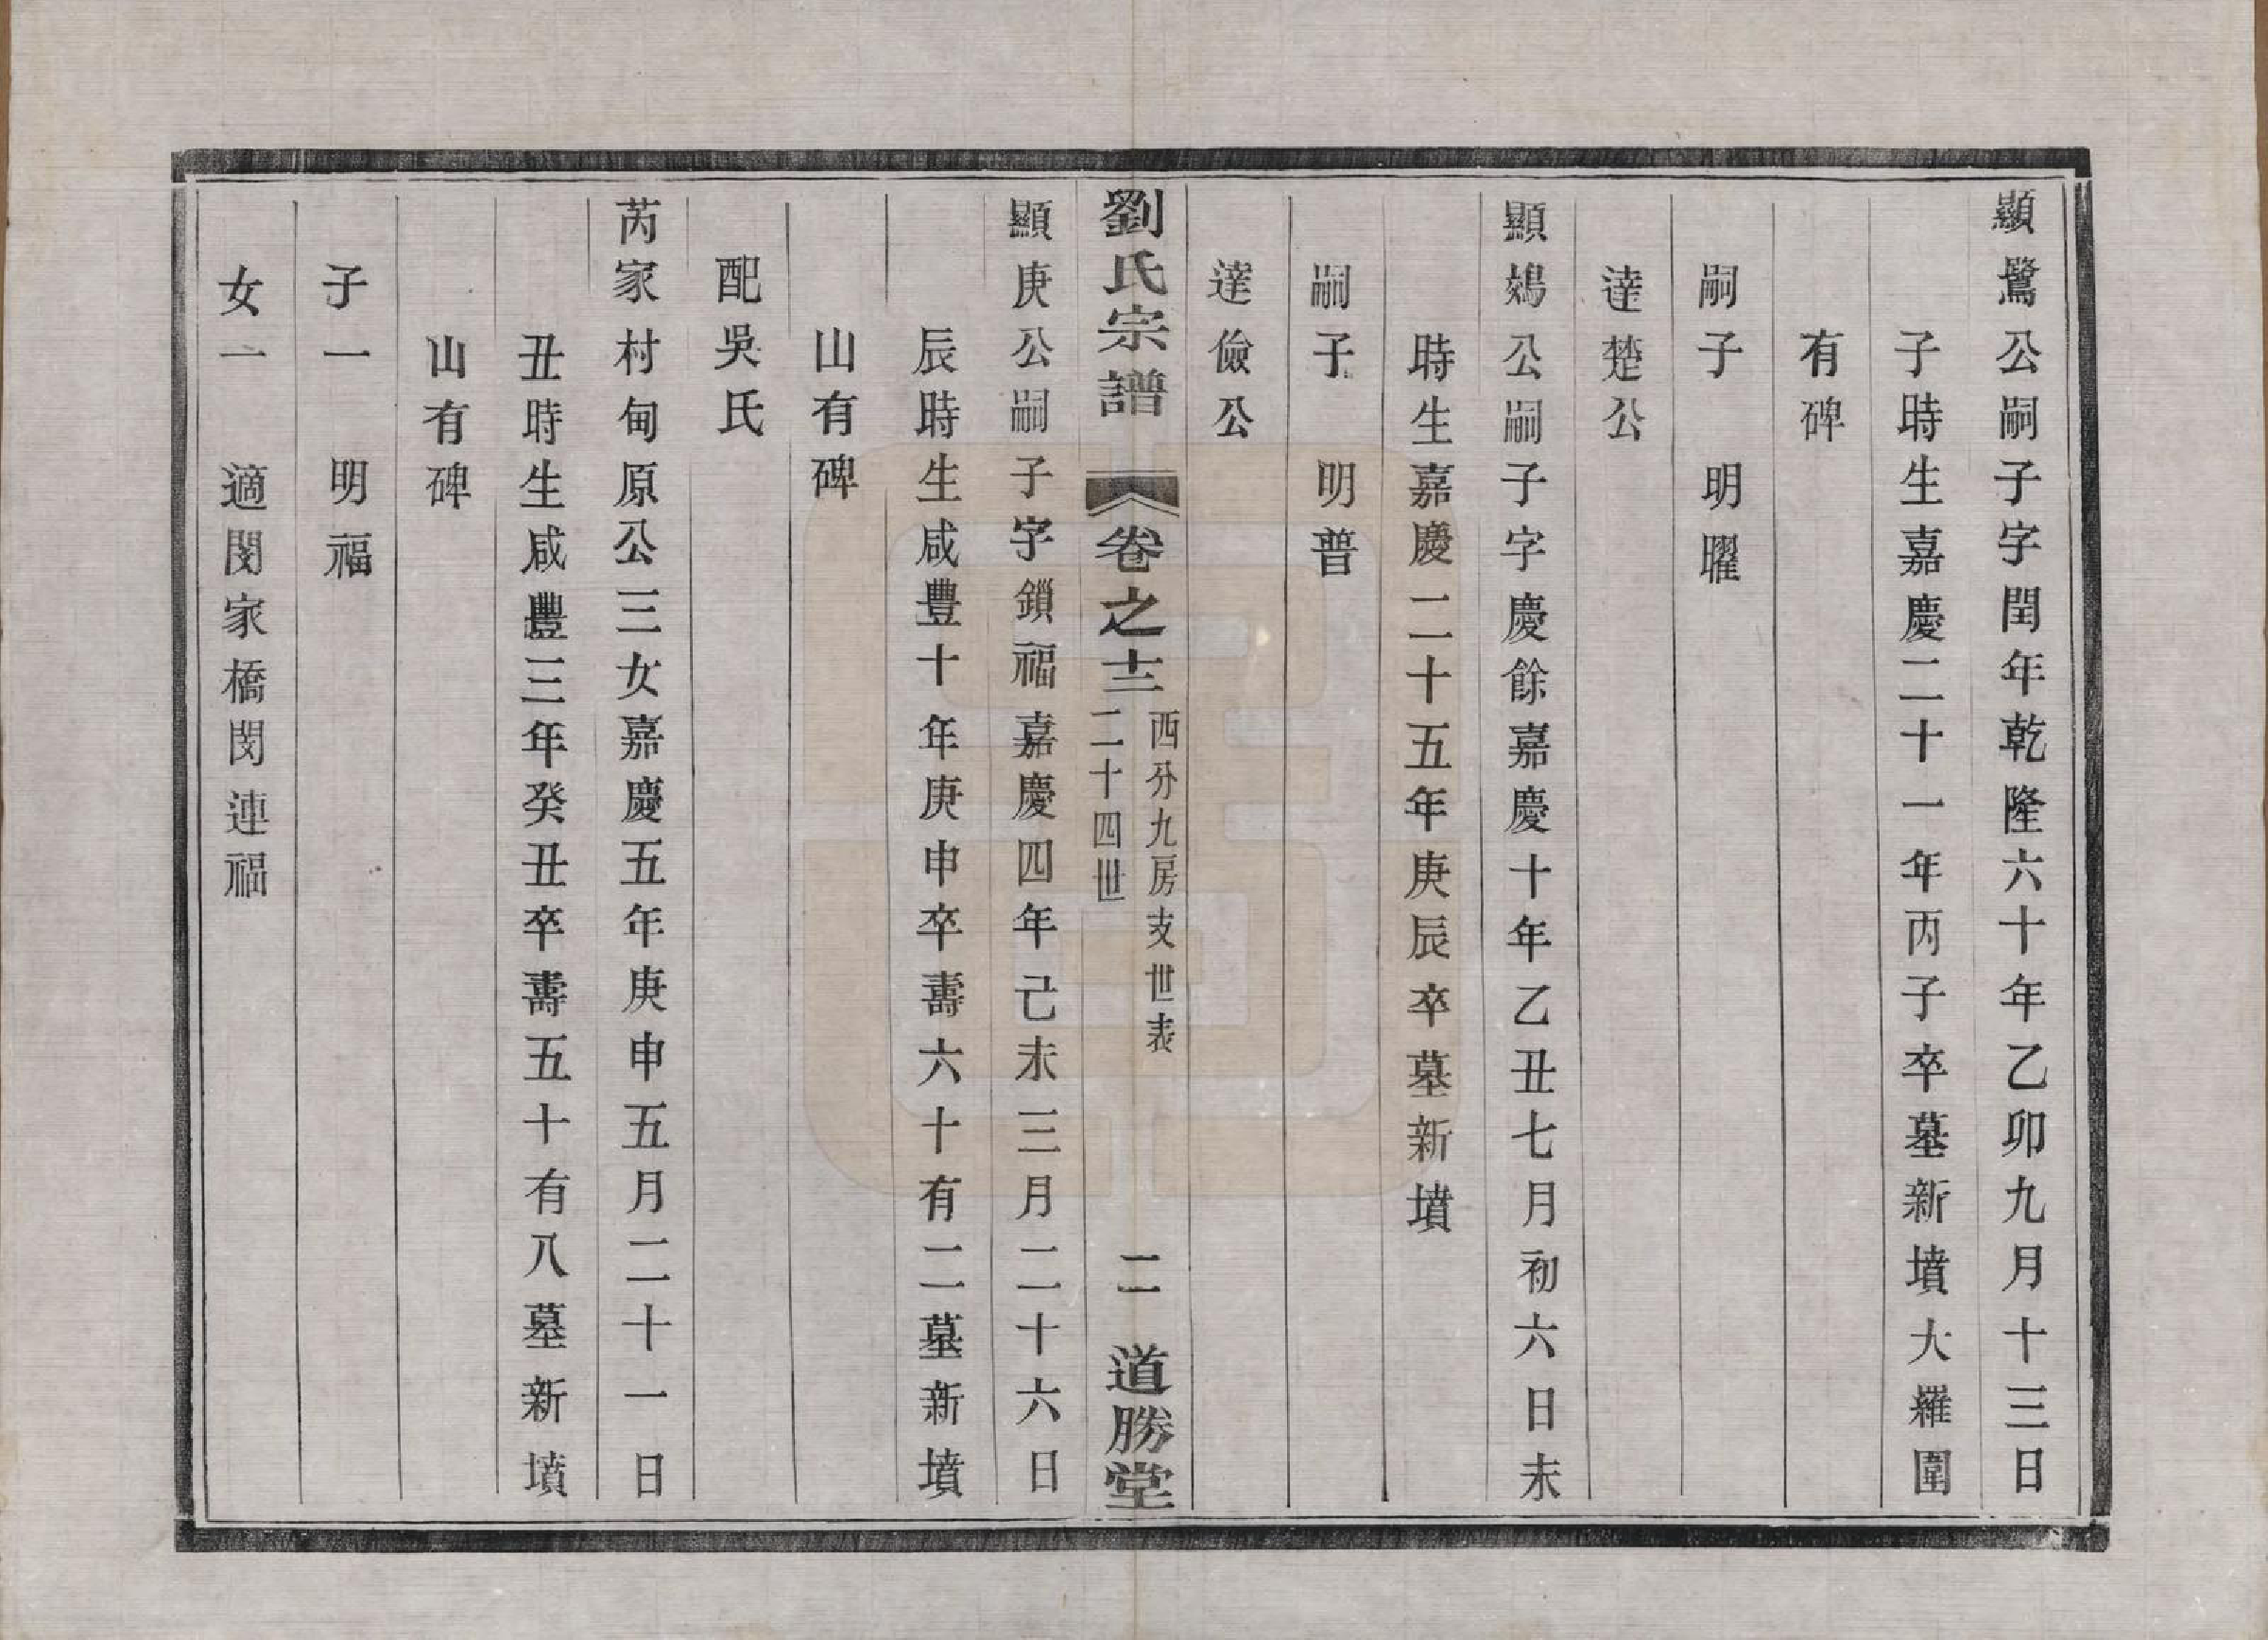 顯鷺公嗣子字閏年乾隆六十年乙卯九月十三日
子時生嘉慶二十一年丙子卒墓新墳大羅圍
有碑
嗣子　明曜
達楚公
顯鴆公嗣子字慶餘嘉慶十年乙丑七月初六日未
時生嘉慶二十五年庚辰卒墓新墳
嗣子　明普
達儉公
劉氏宗譜　卷之十二　西分九房支世表　二十四世　二　道勝堂
顯庚公嗣子字鎖福嘉慶四年己未三月二十六日
辰時生咸豐十年庚申卒壽六十有二墓新墳
山有碑
配吳氏
芮家村甸原公三女嘉慶五年庚申五月二十一日
丑時生咸豐三年癸丑卒壽五十有八墓新墳
山有碑
子一　明福
女一　適閔家橋閔連福